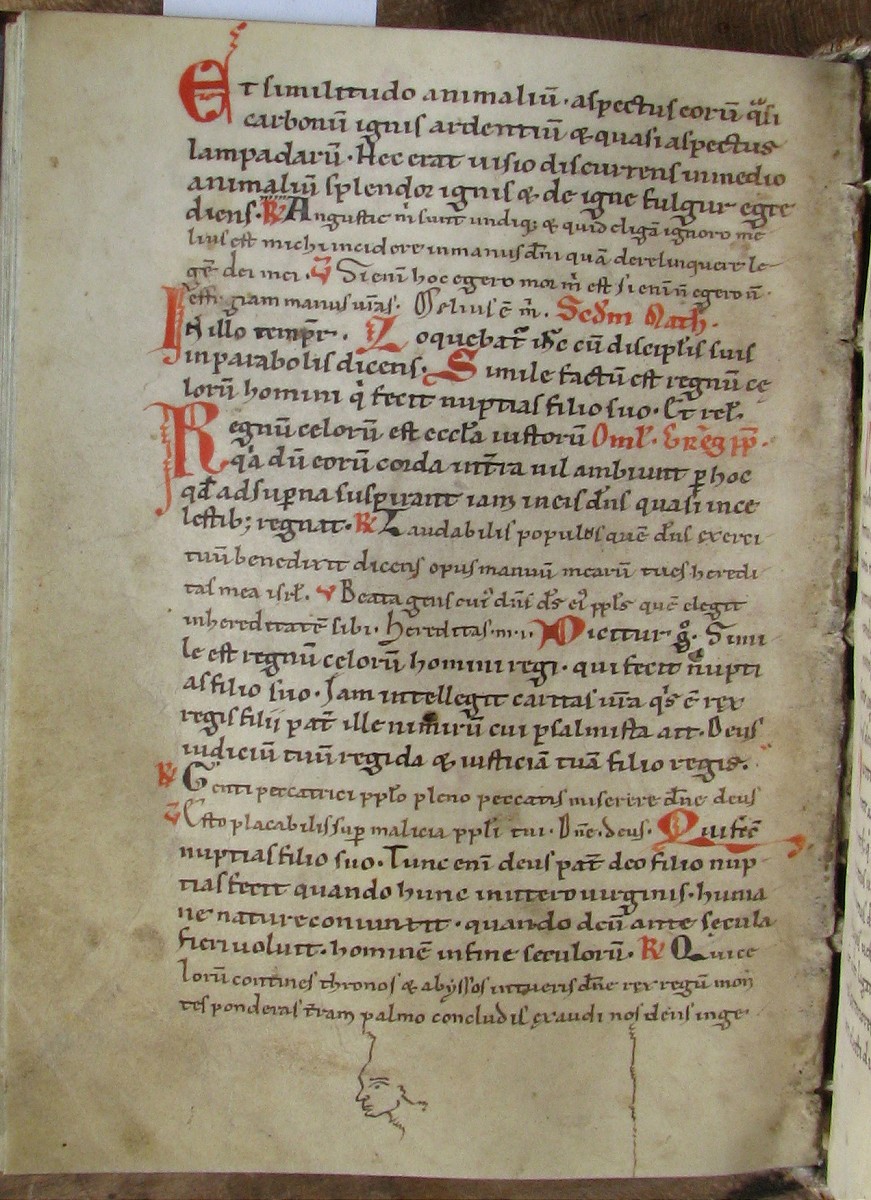 Et similitudo animaliū · aspectus eorū q̄si
carbonū ignis ardentiū & quasi aspectus
lampadarū · Hec erat uisio discurrens inmedio
animaliū splendor ignis & de igne fulgur egre
diens · R̷ Angustie m̄ sunt undiq; & quid eligā ignoro me
lius est michi incidere inmanus dn̄i quā derelinquere le
gē dei mei · V̄ Si eni hoc egero mors m̄ est si eni n̄ egero n̄
effugiam manus ur̄as · Melius ē m̄ · Scd̄m Math ·
In illo temp̄r · Loquebat̄ ih̄c cū disciplis suis
inparabolis dicens · Simile factū est regnū ce
lorū homini q̄ fecit nuptias filio suo · Et rel̄ ·
Regnū celorū est eccl̄a iustorū Omel̄ · Greg̃ pp̄ ·
q̄a dū eorū corda int̄ra nil ambiunt p̱ hoc
qd̄ adsup̱na suspirant iam in eis dn̄s quasi ince
lestib; regnat · R̷ Laudabilis populus quē dn̄s exerci
tuū benedixit dicens opus manuū mearū tu es heredi
tas mea isrl̄ · V Beata gens cui᾽ dn̄s ds̄ ei᾽ ppl̄s quē elegit
inhereditatē sibi · Hereditas · m · i · Dicitur g̊ · Simi
le est regnū celorū homini regi · qui fecit nupti
as filio suo · Iam intellegit caritas ur̄a q̄s ē rex
regis filij pat̄ ille nimirū cui psalmista ait · Deus
iudiciū tuū regi da & iusticiā tuā filio regis ·
R̷ Genti peccatrici ppl̄o pleno peccatis miserere dn̄e deus
V̄ Esto placabilis sup̱ malicia ppl̄i tui · Dn̄e · deus · Qui fec̄
nuptias filio suo · Tunc eni deus pat̄ deo filio nup
tias fecit quando hunc inutero uirginis · huma
ne nature coniunxit · quando dcū ante secula
fieri uoluit · hominē infine seculorū · R̷ Qui ce
lorū contines thronos & abyssos intueris dn̄e rex regū mon
tes ponderas t̄ram palmo concludis exaudi nos deus inge